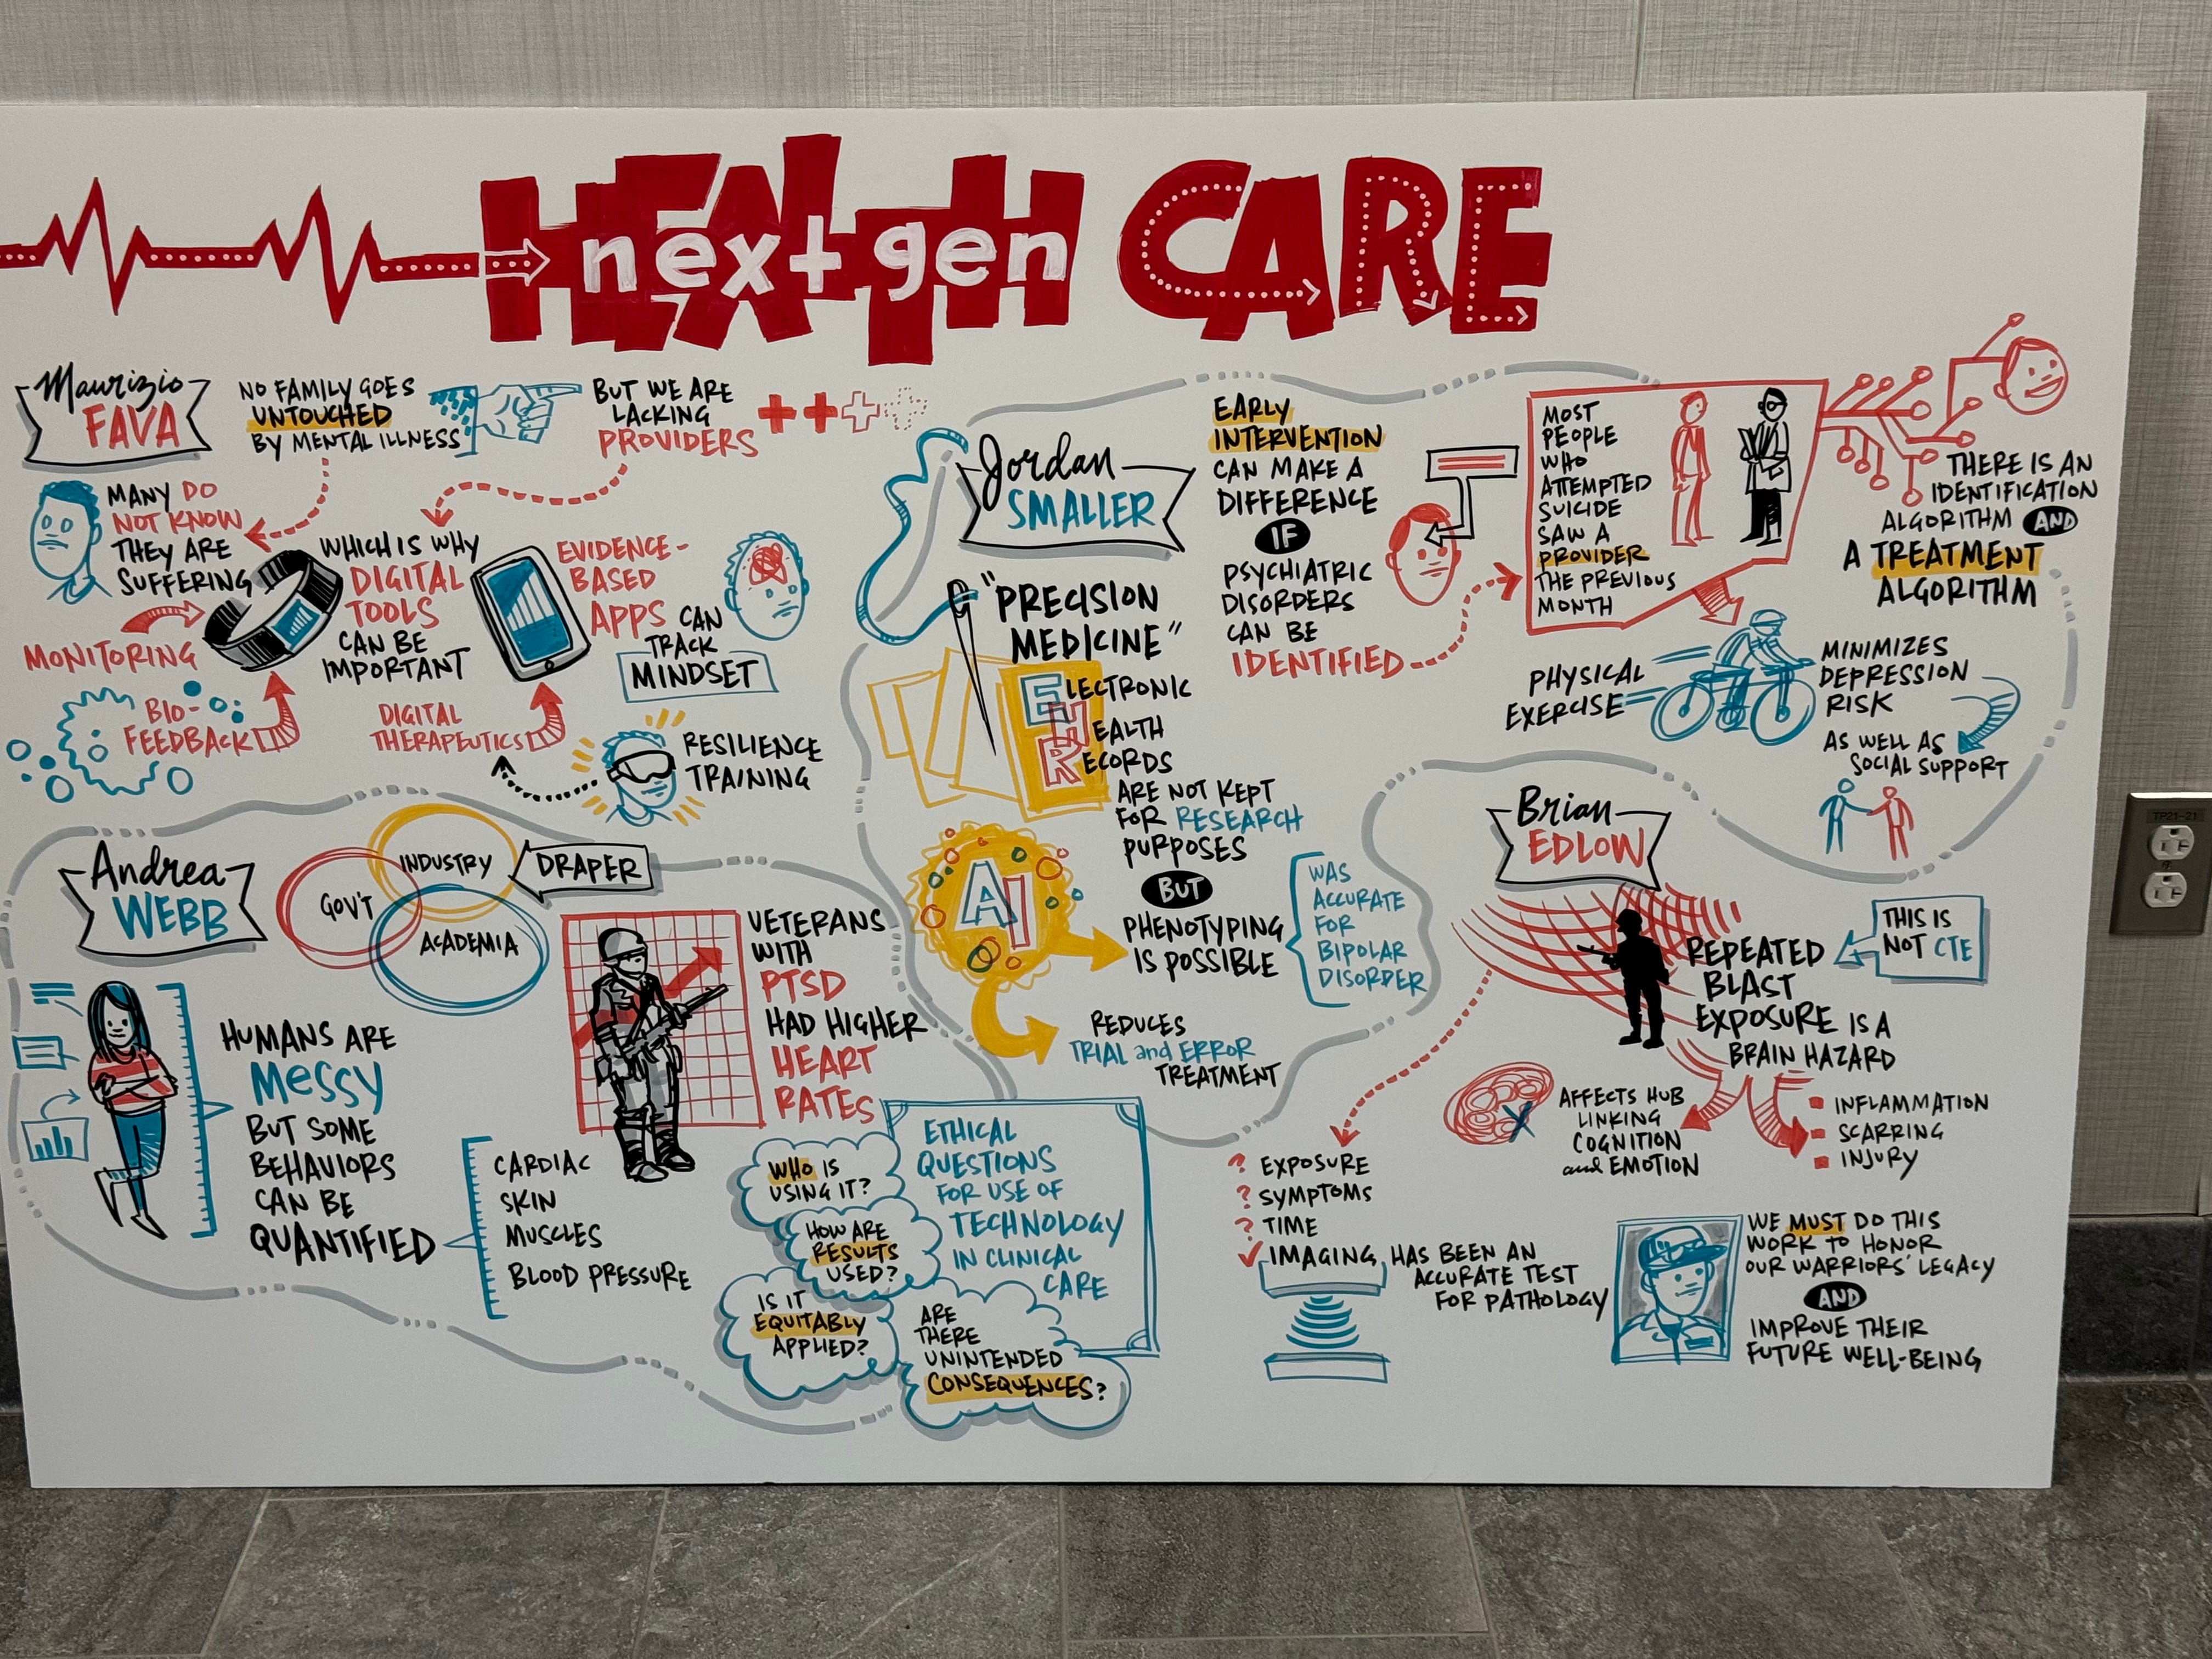 HEALTH CARE
next gen
Maurizio
FAVA
NO FAMILY GOES
UNTOUCHED
BY MENTAL ILLNESS
BUT WE ARE
LACKING
PROVIDERS
MANY DO
NOT KNOW
THEY ARE
SUFFERING
WHICH IS WHY
DIGITAL
TOOLS
CAN BE
IMPORTANT
MONITORING
BIO-
FEEDBACK
EVIDENCE-
BASED
APPS CAN
TRACK
MINDSET
DIGITAL
THERAPEUTICS
RESILIENCE
TRAINING
Andrea
WEBB
GOV'T
INDUSTRY
ACADEMIA
DRAPER
HUMANS ARE
MESSY
BUT SOME
BEHAVIORS
CAN BE
QUANTIFIED
CARDIAC
SKIN
MUSCLES
BLOOD PRESSURE
VETERANS
WITH
PTSD
HAD HIGHER
HEART
RATES
ETHICAL
QUESTIONS
FOR USE OF
TECHNOLOGY
IN CLINICAL
CARE
WHO IS
USING IT?
HOW ARE
RESULTS
USED?
IS IT
EQUITABLY
APPLIED?
ARE
THERE
UNINTENDED
CONSEQUENCES?
Jordan
SMALLER
"PRECISION
MEDICINE"
ELECTRONIC
HEALTH
RECORDS
ARE NOT KEPT
FOR RESEARCH
PURPOSES
BUT
AI
PHENOTYPING
IS POSSIBLE
WAS
ACCURATE
FOR
BIPOLAR
DISORDER
REDUCES
TRIAL and ERROR
TREATMENT
EARLY
INTERVENTION
CAN MAKE A
DIFFERENCE
IF
PSYCHIATRIC
DISORDERS
CAN BE
IDENTIFIED
MOST
PEOPLE
WHO
ATTEMPTED
SUICIDE
SAW A
PROVIDER
THE PREVIOUS
MONTH
THERE IS AN
IDENTIFICATION
ALGORITHM AND
A TREATMENT
ALGORITHM
PHYSICAL
EXERCISE
MINIMIZES
DEPRESSION
RISK
AS WELL AS
SOCIAL SUPPORT
Brian
EDLOW
REPEATED
BLAST
EXPOSURE IS A
BRAIN HAZARD
THIS IS
NOT CTE
AFFECTS HUB
LINKING
COGNITION
and EMOTION
INFLAMMATION
SCARRING
INJURY
? EXPOSURE
? SYMPTOMS
? TIME
✓ IMAGING HAS BEEN AN
ACCURATE TEST
FOR PATHOLOGY
WE MUST DO THIS
WORK TO HONOR
OUR WARRIORS' LEGACY
AND
IMPROVE THEIR
FUTURE WELL-BEING
TP21-21